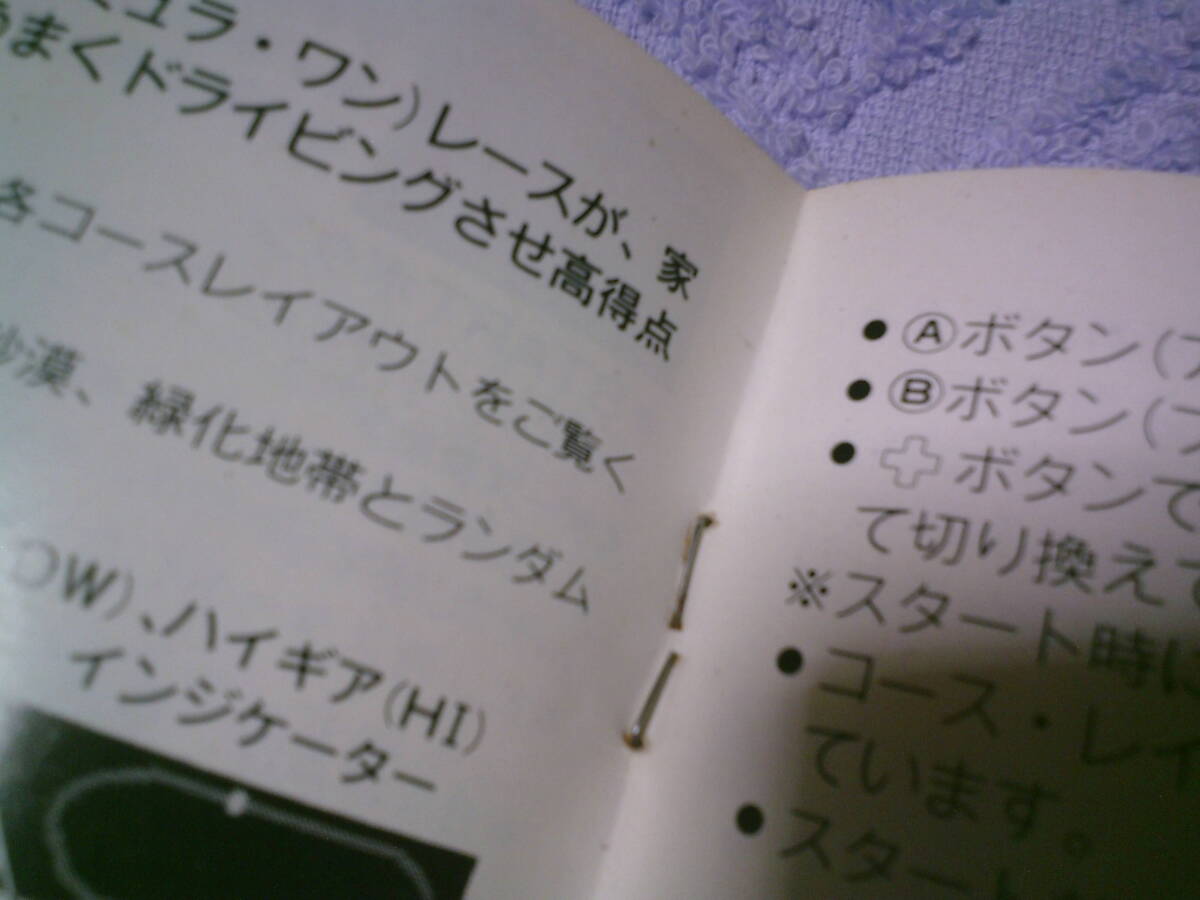 ュラ・ワン)レースが、家
うまくドライビングさせ高得点
各コースレイアウトをご覧く
砂漠、緑化地帯とランダム
OW)、ハイギア(HI)
インジケーター
●Ⓐボタン(ア
●Ⓑボタン(ブ
●✚ボタンで
て切り換えて
※スタート時に
●コース・レイ
ています。
●スタート